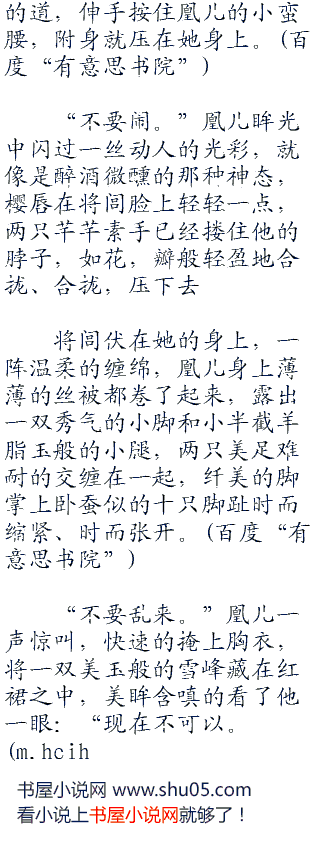 的道，伸手按住凰儿的小蛮
腰，附身就压在她身上。(百
度“有意思书院”)
“不要闹。”凰儿眸光
中闪过一丝动人的光彩，就
像是醉酒微醺的那种神态，
樱唇在将闾脸上轻轻一点，
两只芊芊素手已经搂住他的
脖子，如花，瓣般轻盈地合
拢、合拢，压下去
将闾伏在她的身上，一
阵温柔的缠绵，凰儿身上薄
薄的丝被都卷了起来，露出
一双秀气的小脚和小半截羊
脂玉般的小腿，两只美足难
耐的交缠在一起，纤美的脚
掌上卧蚕似的十只脚趾时而
缩紧、时而张开。(百度“有
意思书院”)
“不要乱来。”凰儿一
声惊叫，快速的掩上胸衣，
将一双美玉般的雪峰藏在红
裙之中，美眸含嗔的看了他
一眼：“现在不可以。
(m.hcih
书屋小说网 www.shu05.com
看小说上书屋小说网就够了！